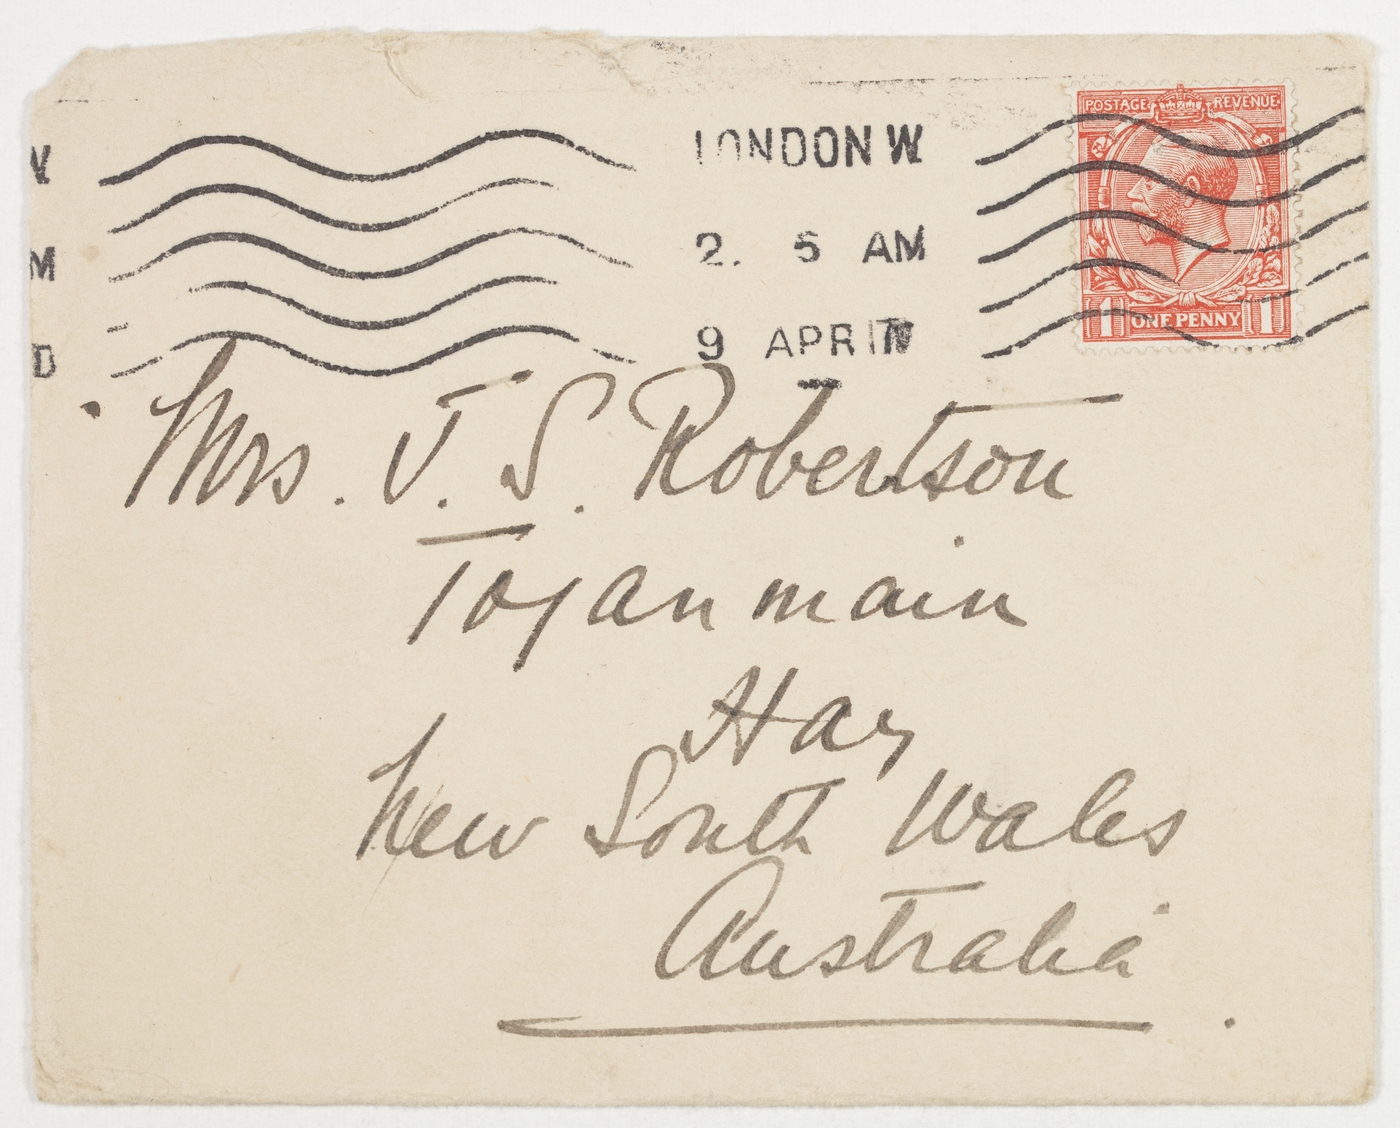 POSTAGE REVENUE
LONDON W.
2. 5 AM
9 APR 17
1 ONE PENNY 1
W.
M
D
Mrs. J. S. Robertson
Toganmain
Hay
New South Wales
Australia.